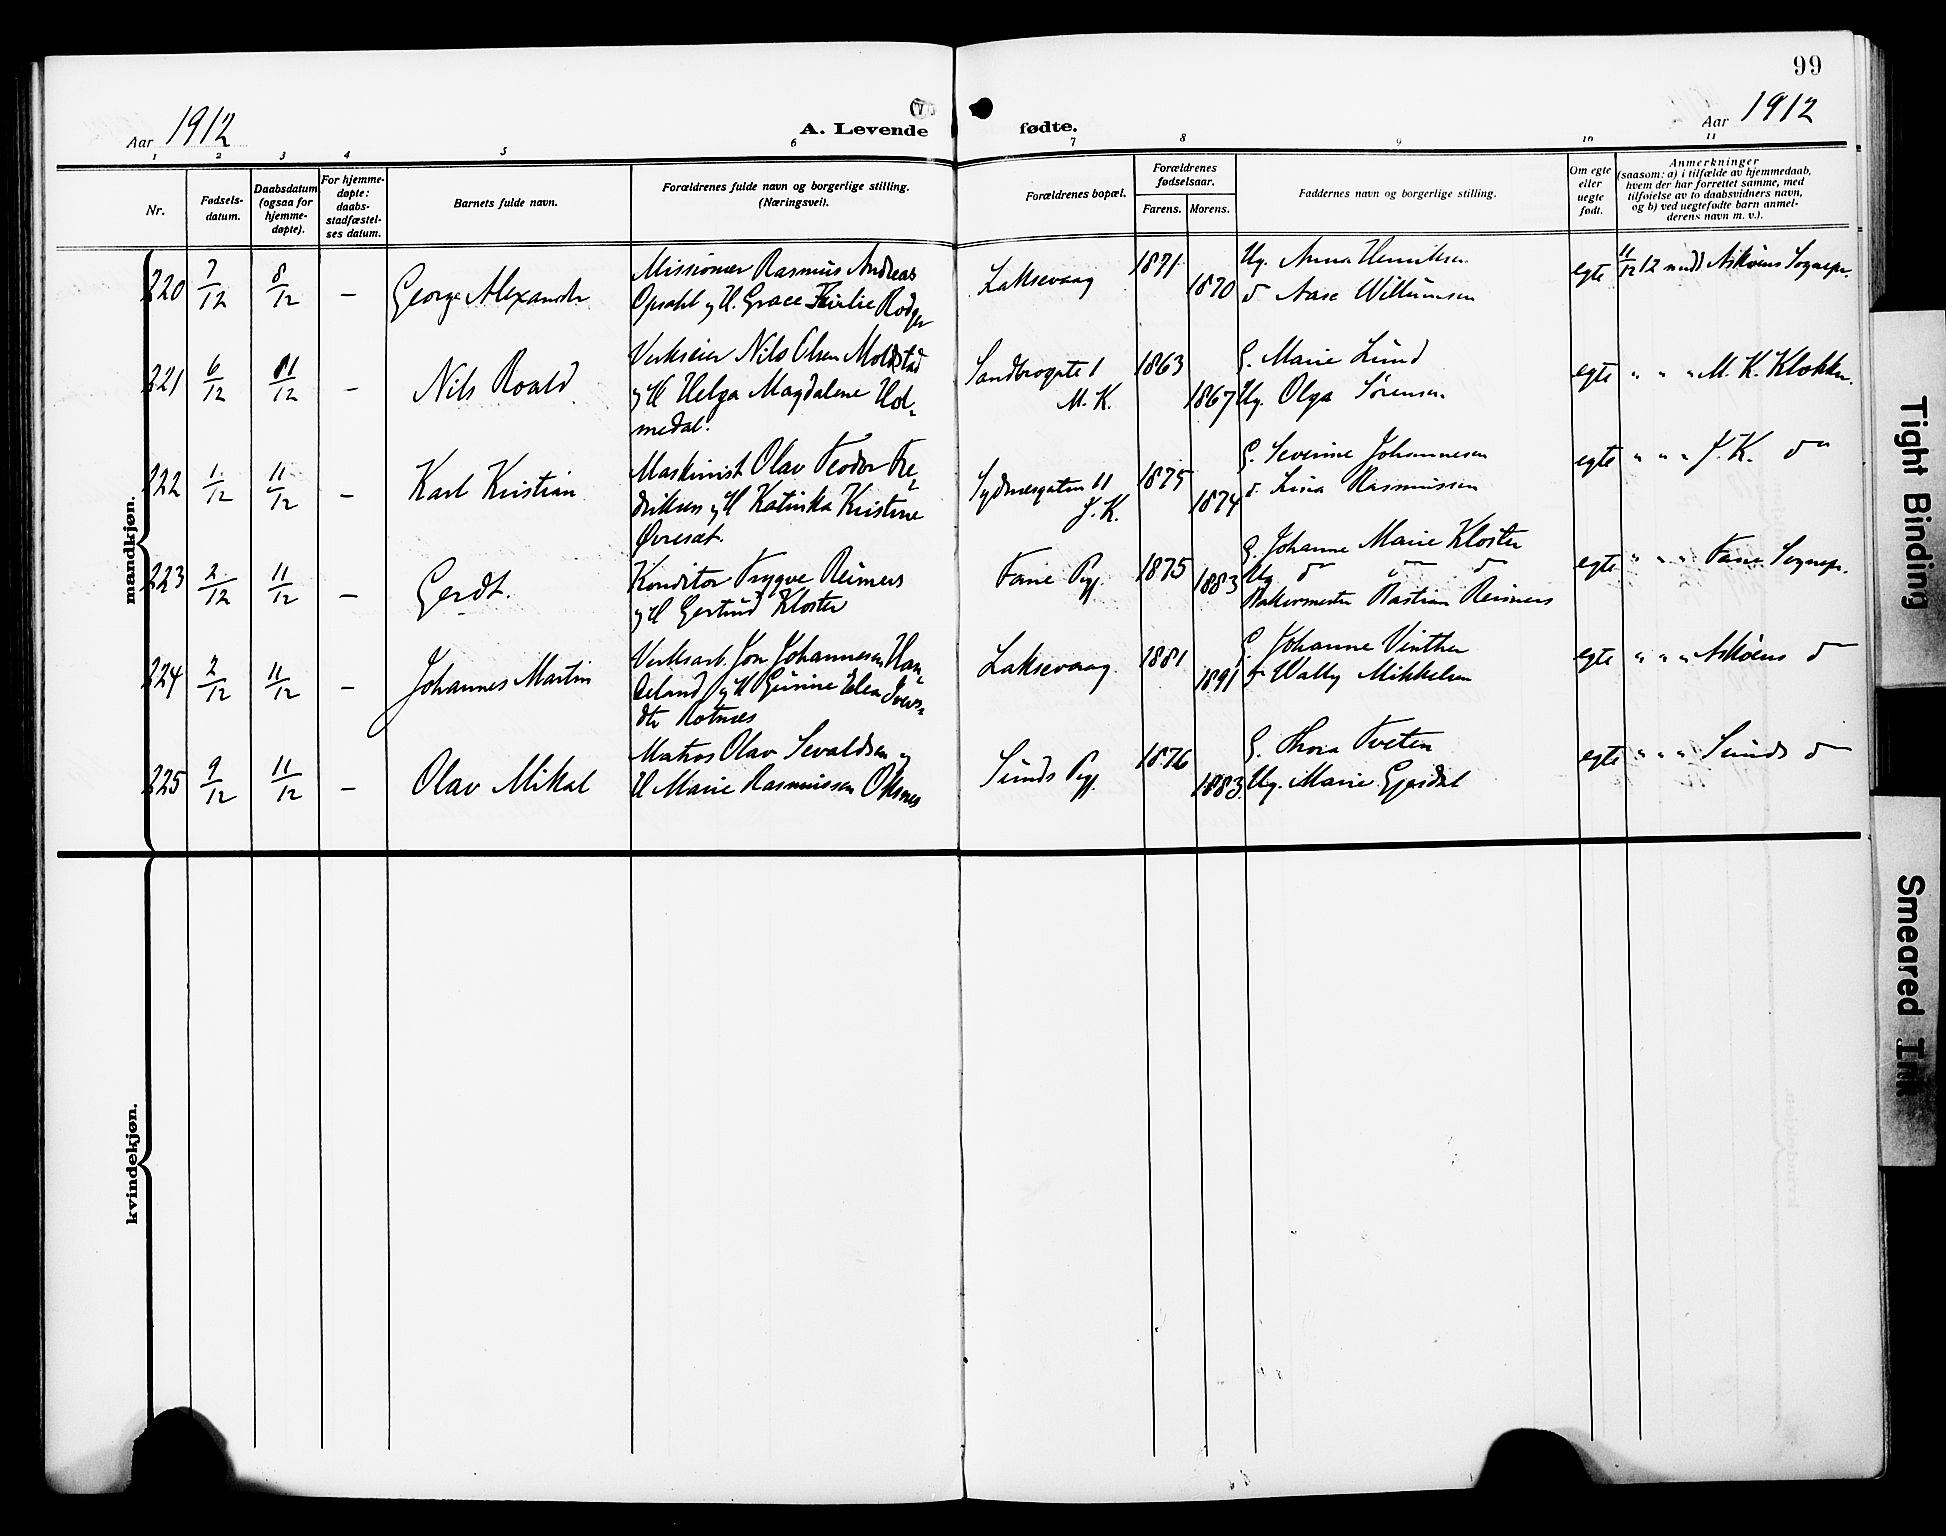 99
Aar 1912
A. Levende fødte.
Aar 1912
1 2 3 4 5 6 7 8 9 10 11
Nr.
Fødsels-
datum.
Daabsdatum
(ogsaa for
hjemme-
døpte).
For hjemme-
døpte:
daabs-
stadfæstel-
ses datum.
Barnets fulde navn.
Forældrenes fulde navn og borgerlige stilling.
(Næringsvei).
Forældrenes bopæl.
Forældrenes
fødselsaar.
Farens. Morens.
Faddernes navn og borgerlige stilling.
Om egte
eller
uegte
født.
Anmerkninger
(saasom: a) i tilfælde av hjemmedaab,
hvem der har forrettet samme, med
tilføielse av to daabsvidners navn,
og b) ved uegtefødte barn anmel-
derens navn m. v.).
mandkjøn.
220 7/12 8/12 — George Alexander
Missionær Rasmus Andreas
Opsahl og H. Grace Fairlie Rodger
Laksevaag 1871 1870
Ug. Anna Henriksen
do Aase Willumsen
egte 11/12 12 medd Askøens Sognepr.
221 6/12 11/12 — Nils Roald
Verkseier Nils Olsen Moldstad
og H Helga Magdalene Hol-
medal.
Sandbrogate 1
M. K.
1863 1867
G. Marie Lund
Ug. Olga Sørensen
egte " " " M. K. Klokker.
222 1/12 11/12 — Karl Kristian
Maskinist Olav Teodor Fre-
driksen og H Katinka Kristine
Øvresæt.
Sydnesgaten 11
J. K.
1875 1874
G. Severine Johannesen
do Lina Rasmussen
egte " " " J. K. do
223 2/12 11/12 — Gerdt.
Konditor Trygve Reimers
og H Gertrud Kloster
Fane Pgj. 1875 1883
G. Johanne Marie Kloster
Ug do do do
Bakermester Bastian Reimers
egte " " " Fane Sognepr.
224 2/12 11/12 — Johannes Martin
Verksarb. Jon Johannesen Hau-
geland og H Gurine Elea Ivers-
dtr Rotnes
Laksevaag 1881 1891
G. Johanne Vinther
do Walby Mikkelsen
egte " " " Askøens do
225 9/12 11/12 — Olav Mikal
Matros Olav Sevaldsen og
H Marie Rasmussen Oksnes
Sunds Pgj. 1876 1883
G. Thora Tveten
Ug. Marie Gjesdal
egte " " " Sunds do
kvindekjøn.
Tight Binding
Smeared Ink